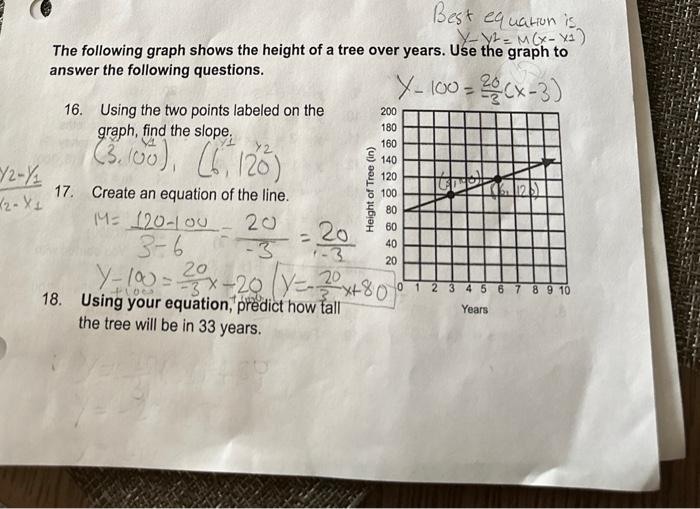 Best equation is
y-y1 = M(x-x1)
The following graph shows the height of a tree over years. Use the graph to
answer the following questions.
y-100 = 20/-3 (x-3)
16. Using the two points labeled on the
graph, find the slope.
(3, 100), (6, 120)
x1 y1 x2 y2
y2-y1
x2-x1
17. Create an equation of the line.
M= 120-100/3-6 = 20/-3 = 20/-3
y-100 = 20/-3 x-20 y=-20/3 x+80
+100 +100
18. Using your equation, predict how tall
the tree will be in 33 years.
Height of Tree (in)
200
180
160
140
120
100
80
60
40
20
(3, 100) (6, 120)
0 1 2 3 4 5 6 7 8 9 10
Years